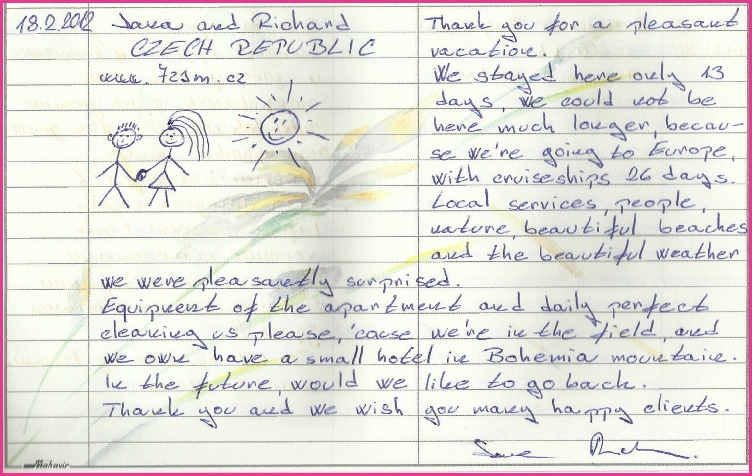 18.2.2012 Jana and Richard
CZECH REPUBLIC
www.723m.cz
Thank you for a pleasant
vacation.
We stayed here only 13
days, we could not be
here much longer, becau-
se we're going to Europe,
with cruiseships 26 days.
Local services, people,
nature, beautiful beaches
and the beautiful weather
we were pleasantly surprised.
Equipment of the apartment and daily perfect
cleaning us please, 'cause we're in the field, and
we own have a small hotel in Bohemia mountain.
In the future, would we like to go back.
Thank you and we wish you many happy clients.
Mahavir